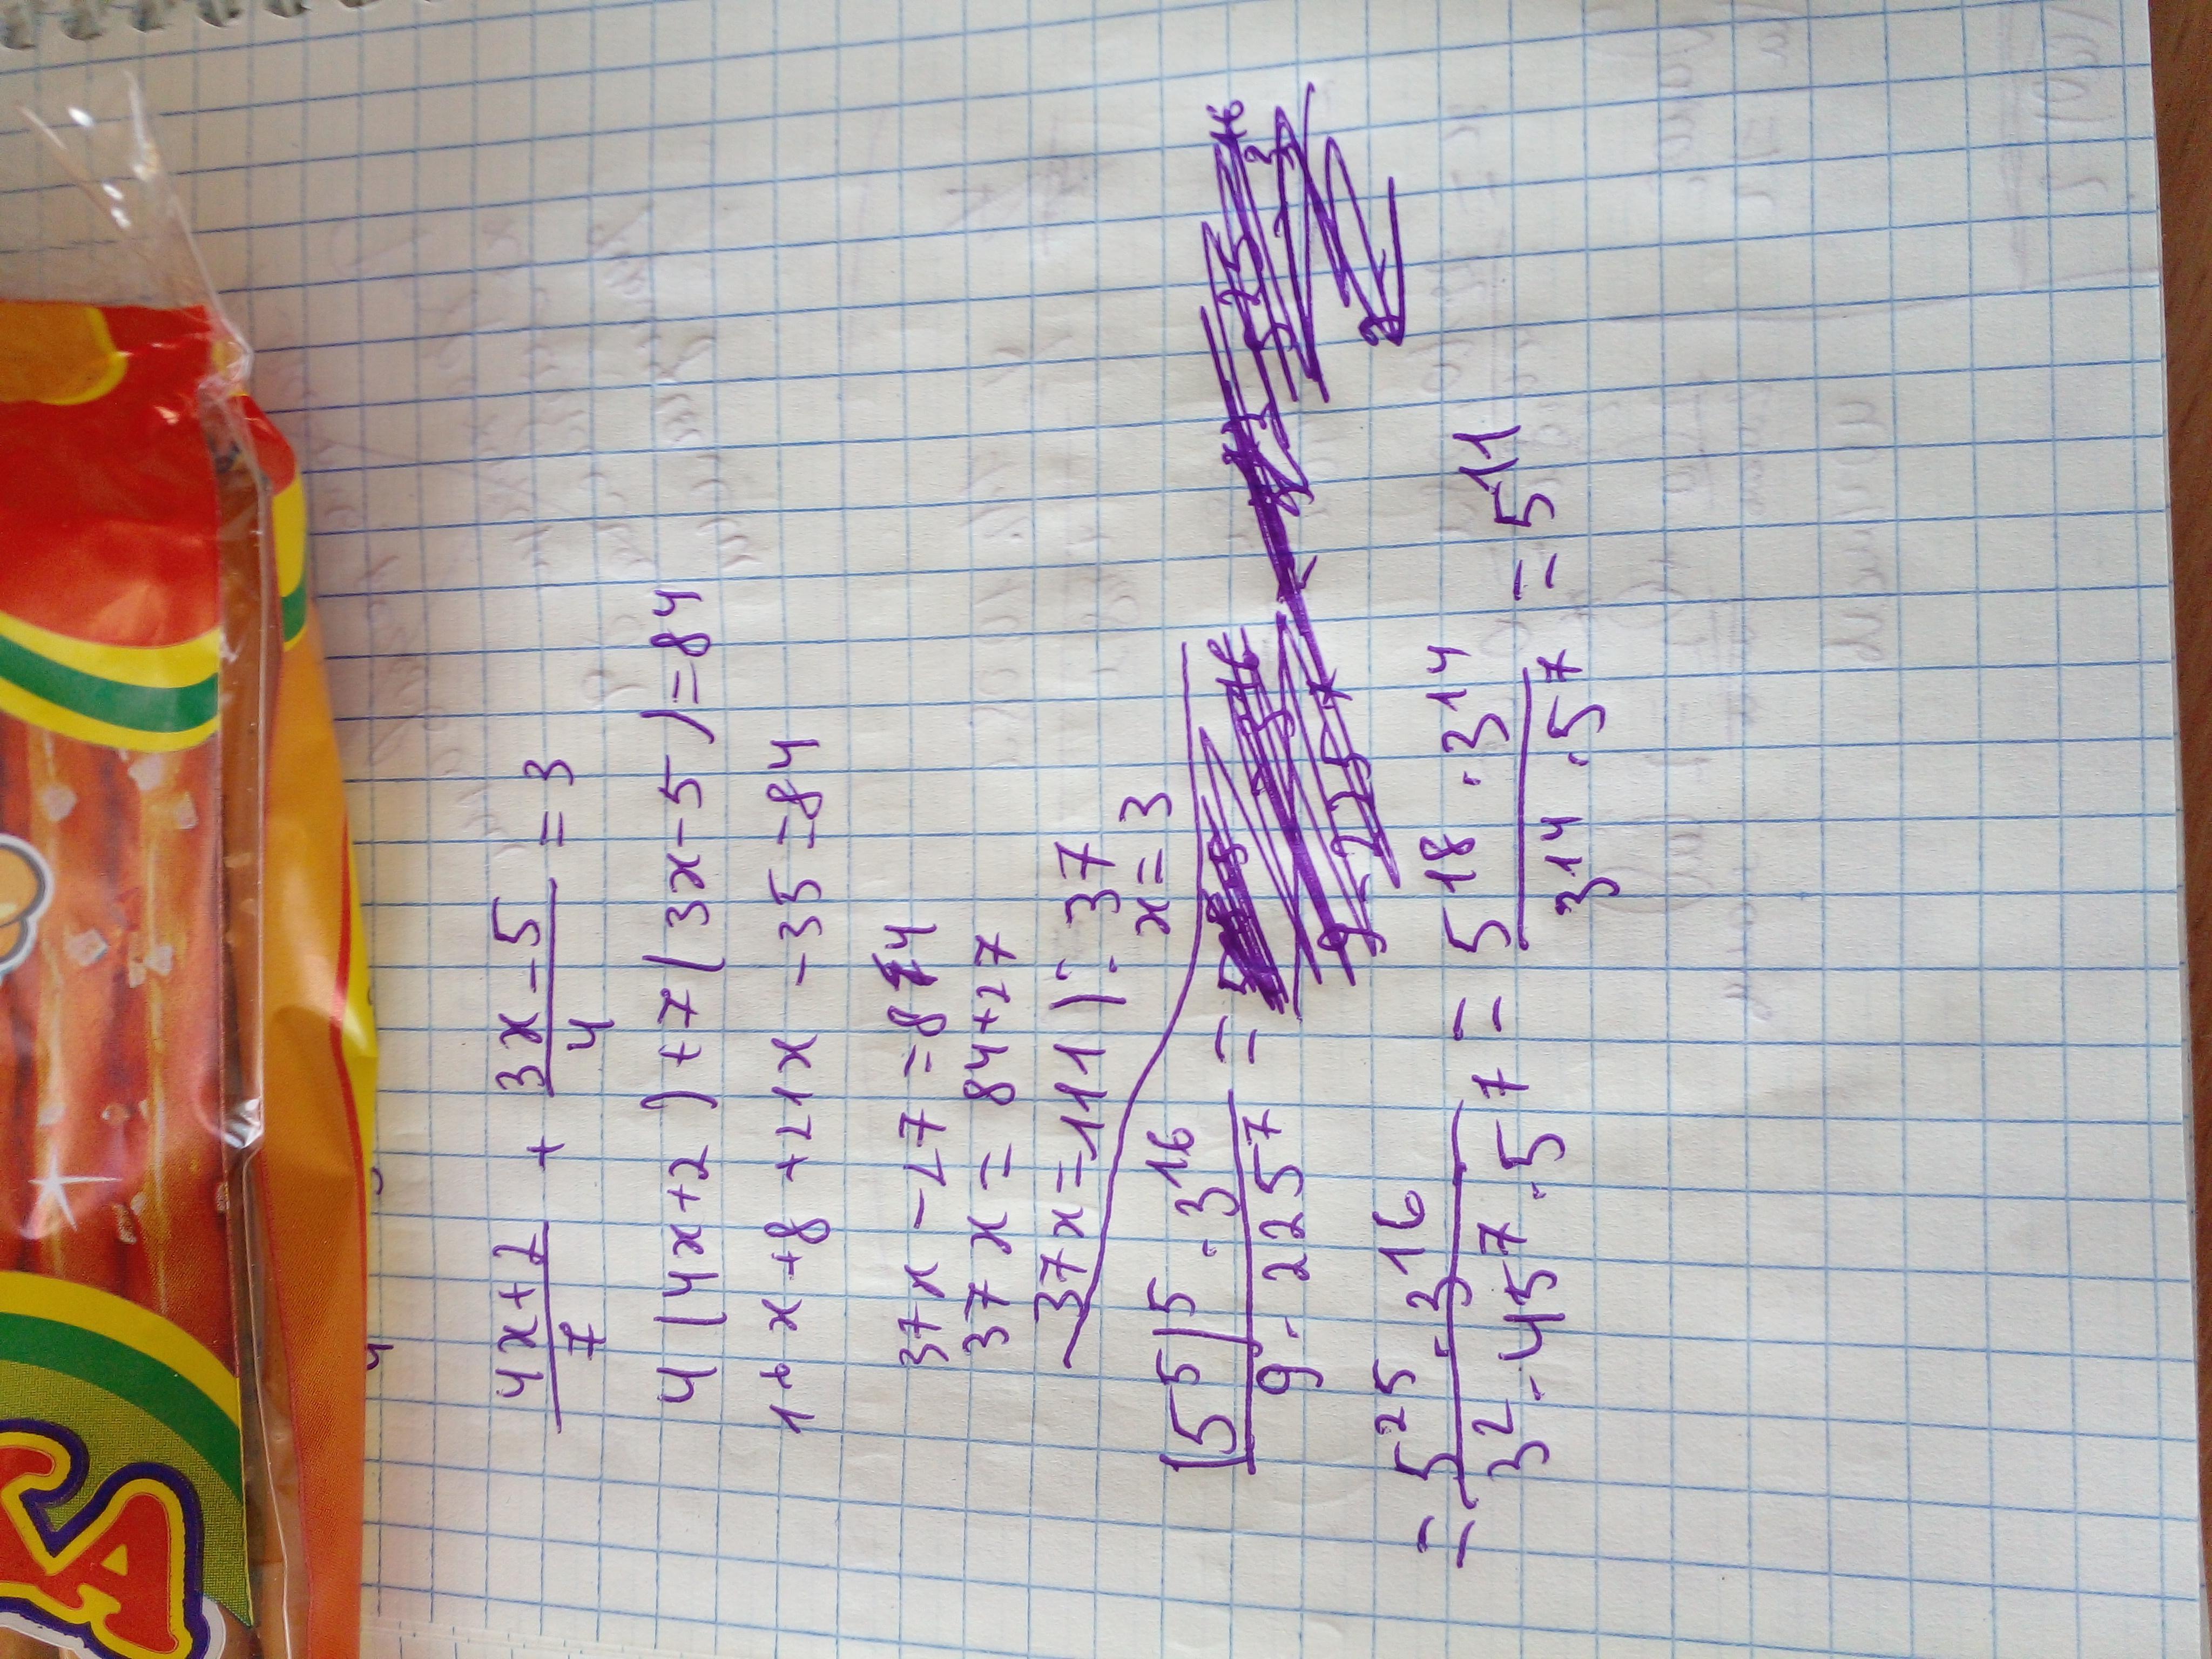 4x+2/7 + 3x-5/4 = 3
4(4x+2)+7(3x-5)=84
16x+8+21x-35=84
37x-27=84
37x=84+27
37x=111 |:37
x=3
(5⁵)⁵·3¹⁶/9·225⁷ =
= 5²⁵·3¹⁶/3²·45⁷·5⁷ = 5¹⁸·3¹⁴/3¹⁴·5⁷ = 5¹¹
A